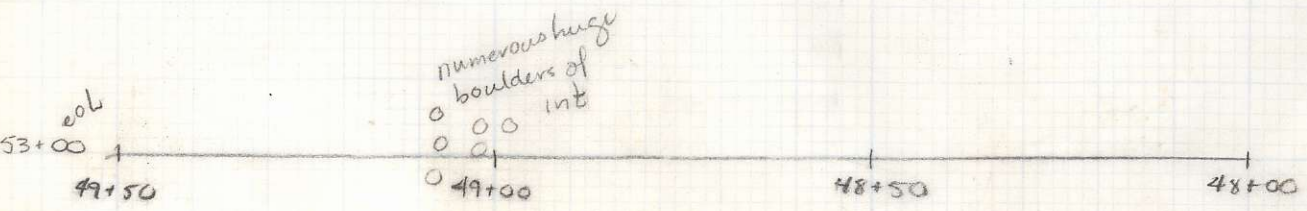 numerous huge
boulders of
int
eoL
53+00
49+50 49+00 48+50 48+00